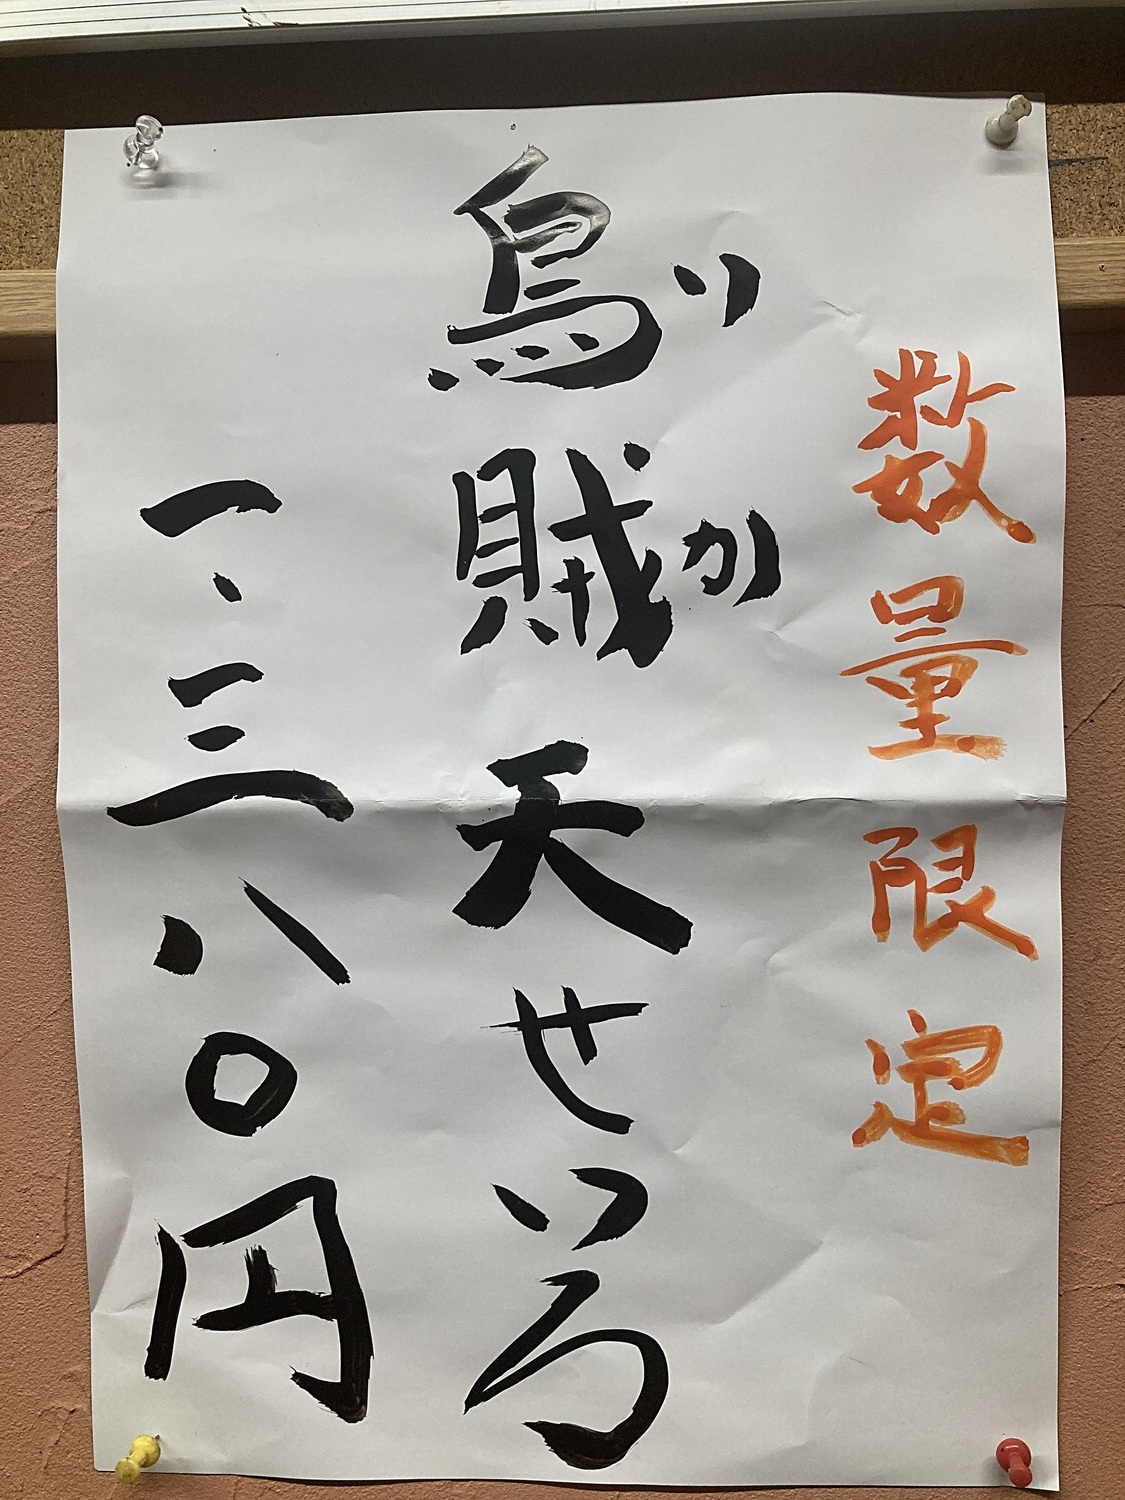 数量限定
いか
烏賊天せいろ
一、三八〇円